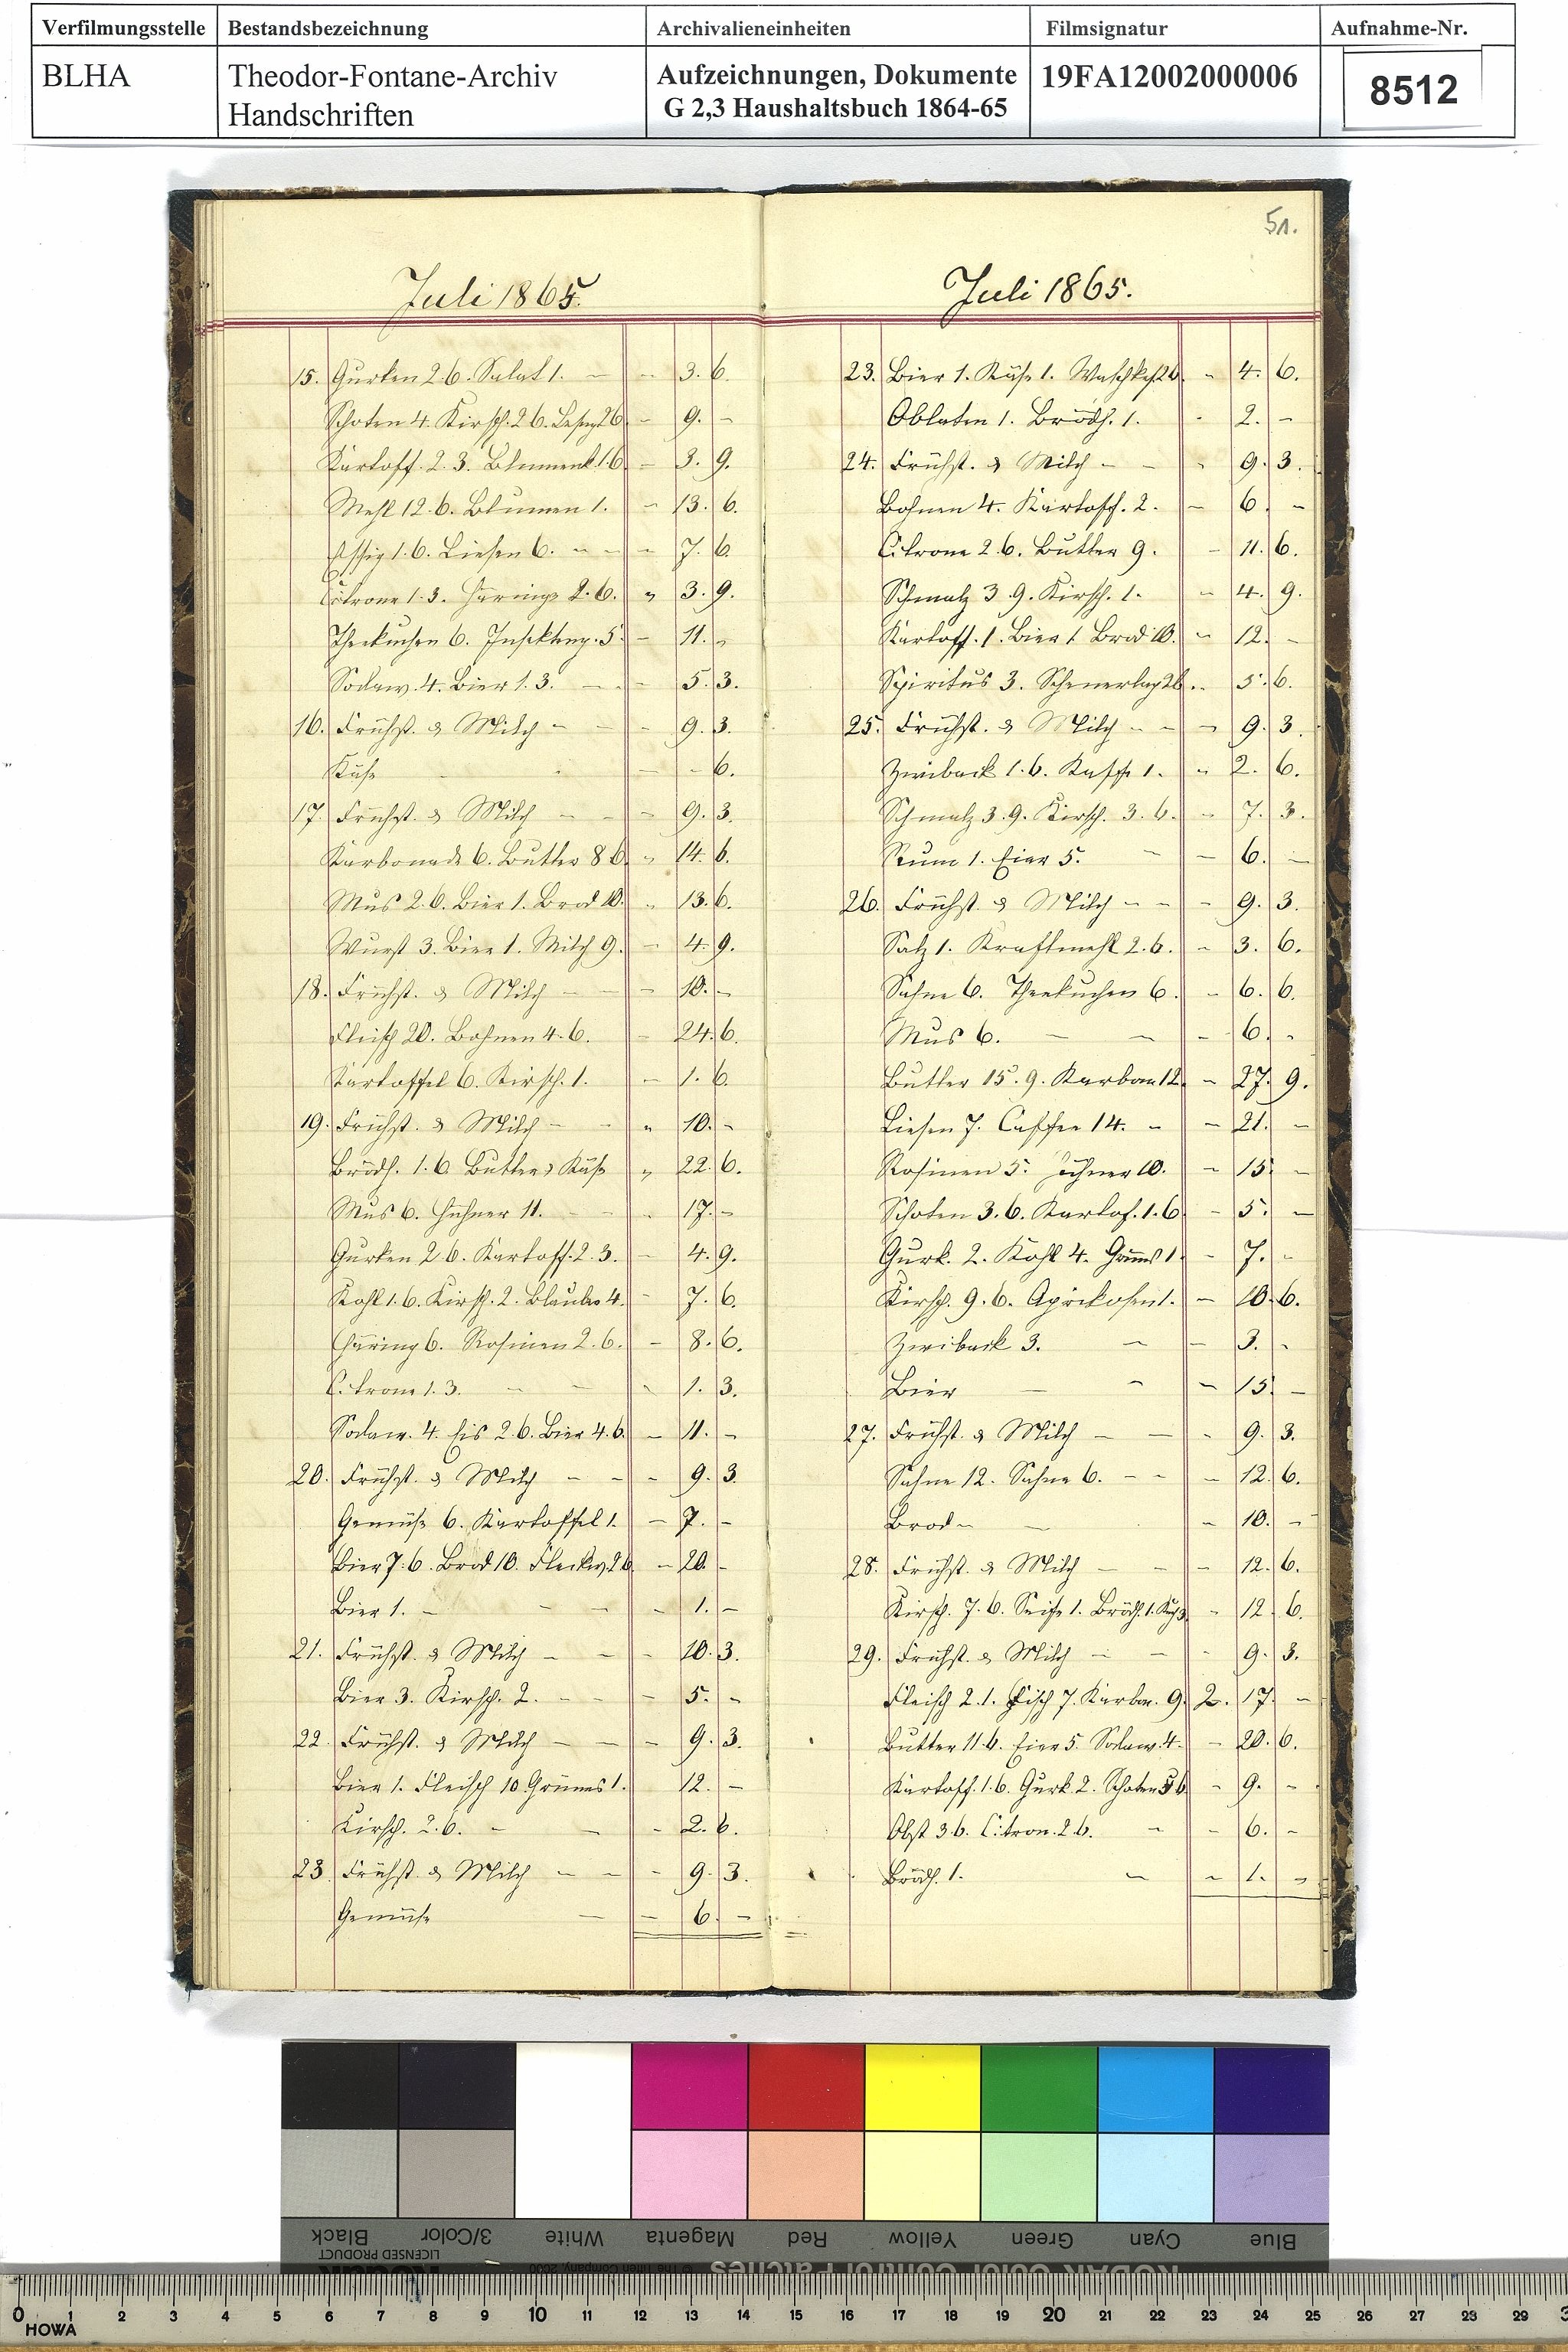 Verfilmungsstelle Bestandsbezeichnung Archivalieneinheiten Filmsignatur Aufnahme-Nr.
BLHA Theodor-Fontane-Archiv Aufzeichnungen, Dokumente 19FA12002000006 8512
Handschriften G 2,3 Haushaltsbuch 1864-65
Juli 1865.
15. Gurken 2 6. Salat 1. – – 3. 6.
Schoten 4. Kirsch. 2 6. 26 – 9. –
Kartoff. 2. 3. Blumenk. 1 6 – 3. 9.
Mehl 12. 6. Blumen 1. – 13. 6.
Essig 1. 6. Liesen 6. – – – 7. 6.
Citrone 1. 3. Häringe 2. 6. „ 3. 9.
Theekuchen 6. Insektenp. 5. – 11. –
Sodaw. 4. Bier 1. 3. – – – 5. 3.
16. Frühst. & Milch – – – 9. 3.
Käse – – – 6.
17. Frühst. & Milch – – – 9. 3.
Karbonade 6. Butter 8 6. – 14. 6.
Mus 2. 6. Bier 1. Brod 10. – 13. 6.
Wurst 3. Bier 1. Milch 9. – 4. 9.
18. Frühst. & Milch – – – 10. –
Fleisch 20. Bohnen 4. 6. – 24. 6.
Kartoffel 6. Kirsch. 1. – 1. 6.
19. Frühst. & Milch – – „ 10. –
Brödch. 1. 6 Butter & Käse „ 22. 6.
Mus 6. Hühner 11. – – – 17. –
Gurken 2 6. Kartoff. 2. 3. – 4. 9.
Kohl 1. 6. Kirsch. 2. Blaub. 4. – 7. 6.
Häring 6. Rosinen 2. 6. – 8. 6.
Citrone 1. 3. – – – 1. 3.
Sodaw. 4. Eis 2. 6. Bier 4. 6. – 11. –
20. Frühst. & Milch – – – 9. 3.
Gemüse 6. Kartoffel 1. – 7. –
Bier 7. 6. Brod 10. Fleckw. 2 6 – 20. –
Bier 1. – – – – 1. –
21. Frühst. & Milch – – – 10. 3.
Bier 3. Kirsch. 2. – – – 5. –
22. Frühst. & Milch – – – 9. 3.
Bier 1. Fleisch 10. Grünes 1. 12. –
Kirsch. 2. 6. – – – 2. 6.
23. Frühst. & Milch – – – 9. 3.
Gemüse – – 6. –
51.
Juli 1865.
23. Bier 1. Käse 1. 26. – 4. 6.
Oblaten 1. Brödch. 1. – 2. –
24. Frühst. & Milch – – – 9. 3.
Bohnen 4. Kartoff. 2. – 6. –
Citrone 2. 6. Butter 9. – 11. 6.
Schmalz 3. 9. Kirsch. 1. – 4. 9.
Kartoff. 1. Bier 1. Brod 10. – 12. –
Spiritus 3. Scheuerlap. 26. – 5. 6.
25. Frühst. & Milch – – – 9. 3.
Zwiback 1. 6. Kaffe 1. – 2. 6.
Schmalz 3. 9. Kirsch. 3. 6. – 7. 3.
Rum 1. Eier 5. – – 6. –
26. Frühst. & Milch – – – 9. 3.
Salz 1. Kraftmehl 2. 6. – 3. 6.
Sahne 6. Theekuchen 6. – 6. 6.
Mus 6. – – – 6. –
Butter 15. 9. Karbon. 12. – 27. 9.
Liesen 7. Caffee 14. – – 21. –
Rosinen 5. Hühner 10. – 15. –
Schoten 3. 6. Kartof. 1. 6 – 5. –
Gurk. 2. Kohl 4. Grünes 1 – 7. –
Kirsch. 9. 6. Aprikosen 1. – 10. 6.
Zwiback 3. – – 3. –
Bier – – – 15. –
27. Frühst. & Milch – – – 9. 3.
Sahne 12. Sahne 6. – – – 12. 6.
Brod – – – 10. –
28. Frühst. & Milch – – – 12. 6.
Kirsch. 7. 6. Seife 1. Brödch. 1. 3 – 12. 6.
29. Frühst. & Milch – – – 9. 3.
Fleisch 2. 1. Fisch 7. Karbon. 9. 2. 17. –
Butter 11. 6. Eier 5. Sodaw. 4. – 20. 6.
Kartoff. 1. 6. Gurk. 2. Schoten 5 6. – 9. –
Obst 3 6. Citron. 2 6. – – 6. –
Brödch. 1. – – 1. –
Black 3/Color White Magenta Red Yellow Green Cyan Blue
LICENSED PRODUCT
Kodak © The Tiffen Company, 2000 KODAK Color Control Patches
0 1 2 3 4 5 6 7 8 9 10 11 12 13 14 15 16 17 18 19 20 21 22 23 24 25 26 27 28 29 3
HOWA